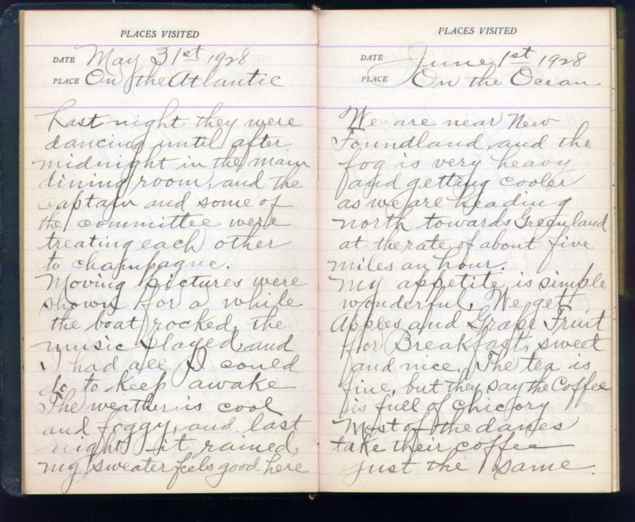 PLACES VISITED
DATE May 31st 1928
PLACE On the Atlantic
Last night they were
dancing until after
midnight in the main
dining room, and the
captain and some of
the committee were
treating each other
to champagne.
Moving pictures were
shown for a while
the boat rocked, the
music played and
I had all I could
do to keep awake
The weather is cool
and foggy, and last
night it rained,
my sweater feels good here
PLACES VISITED
DATE June 1st 1928
PLACE On the Ocean
We are near New
Foundland, and the
fog is very heavy
and getting cooler
as we are heading
north towards
at the rate of about five
miles an hour.
My appetite is simple
wonderful. We gett
Apples and Grape Fruit
for Breakfast, sweet
and nice. The tea is
fine, but they say the Coffee
is full of chicory
Most of the
take their coffee
just the same.